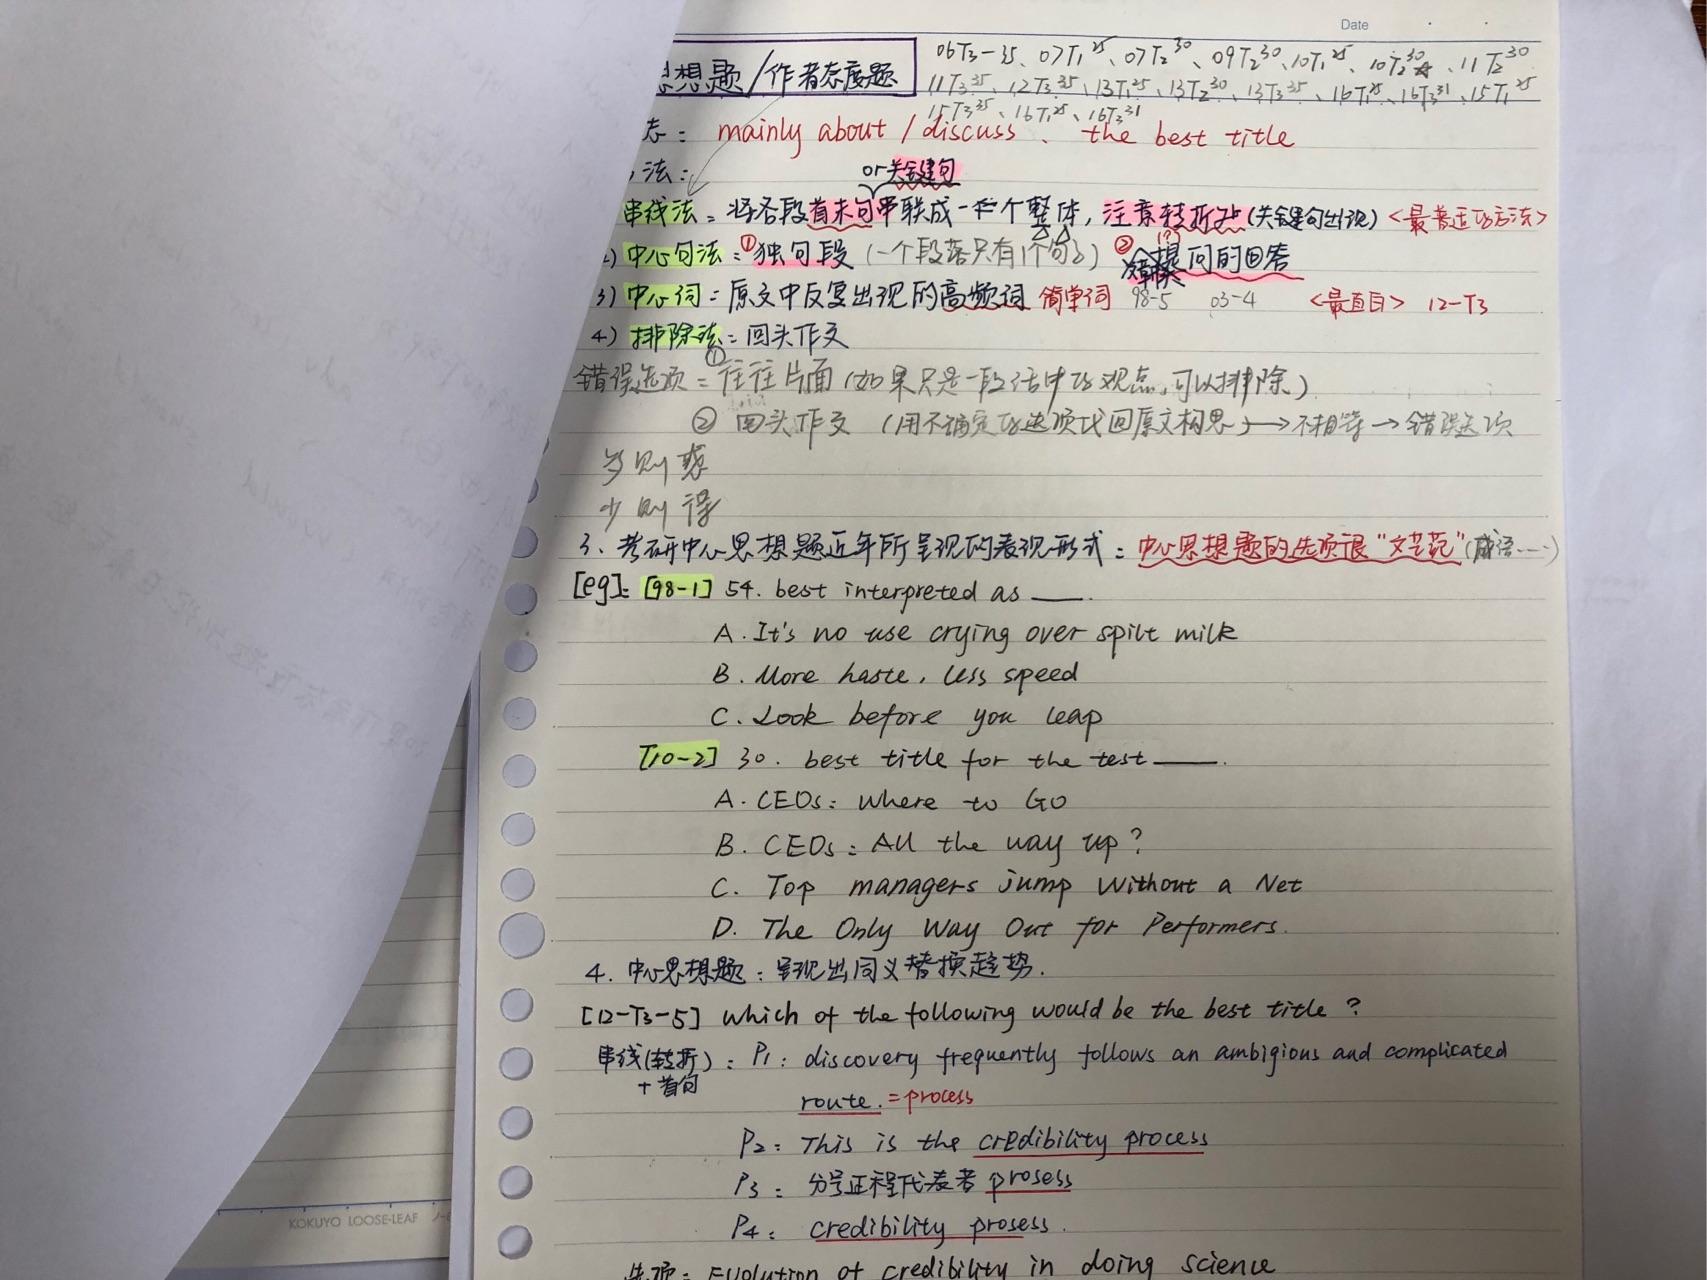 Date
思想题/作者态度题
06T3-35、07T1 25、07T2 30、09T2 30、10T1 25、10T2 30☆、11T2 30
11T3 35、12T3 35、13T1 25、13T2 30、13T3 35、16T1 25、16T3 31、15T1 25
15T3 35、16T1 25、16T3 31
志: mainly about / discuss、the best title
法:
or关键句
串线法: 将各段首末句串联成一个整体,注意转折处(关键句出现)<最普适的方法>
2)中心句法:①独句段(一个段落只有1个句子) ② 提问的回答
3)中心词:原文中反复出现的高频词 简单词 98-5 03-4 <最直白> 12-T3
4)排除法:回头作文
错误选项=①往往片面(如果只是一段话中的观点,可以排除)
②回头作文(用不确定的选项代回原文构思)→不相等→错误选项
多则惑
少则得
3、考研中心思想题近年所呈现的表现形式:中心思想题的选项很"文艺范"(成语……)
[eg]: [98-1] 54. best interpreted as ___.
A. It's no use crying over spilt milk
B. More haste, less speed
C. Look before you leap
[10-2] 30. best title for the test ___.
A. CEOs: Where to Go
B. CEOs: All the way up?
C. Top managers jump without a Net
D. The Only Way Out for Performers.
4. 中心思想题:呈现出同义替换趋势.
[12-T3-5] Which of the following would be the best title?
串线(转折): P1: discovery frequently follows an ambigious and complicated
+首句
route. =process
P2: This is the credibility process
P3: 分号 代表着 prosess
P4: credibility prosess.
选项: Evolution of credibility in doing science
KOKUYO LOOSE-LEAF